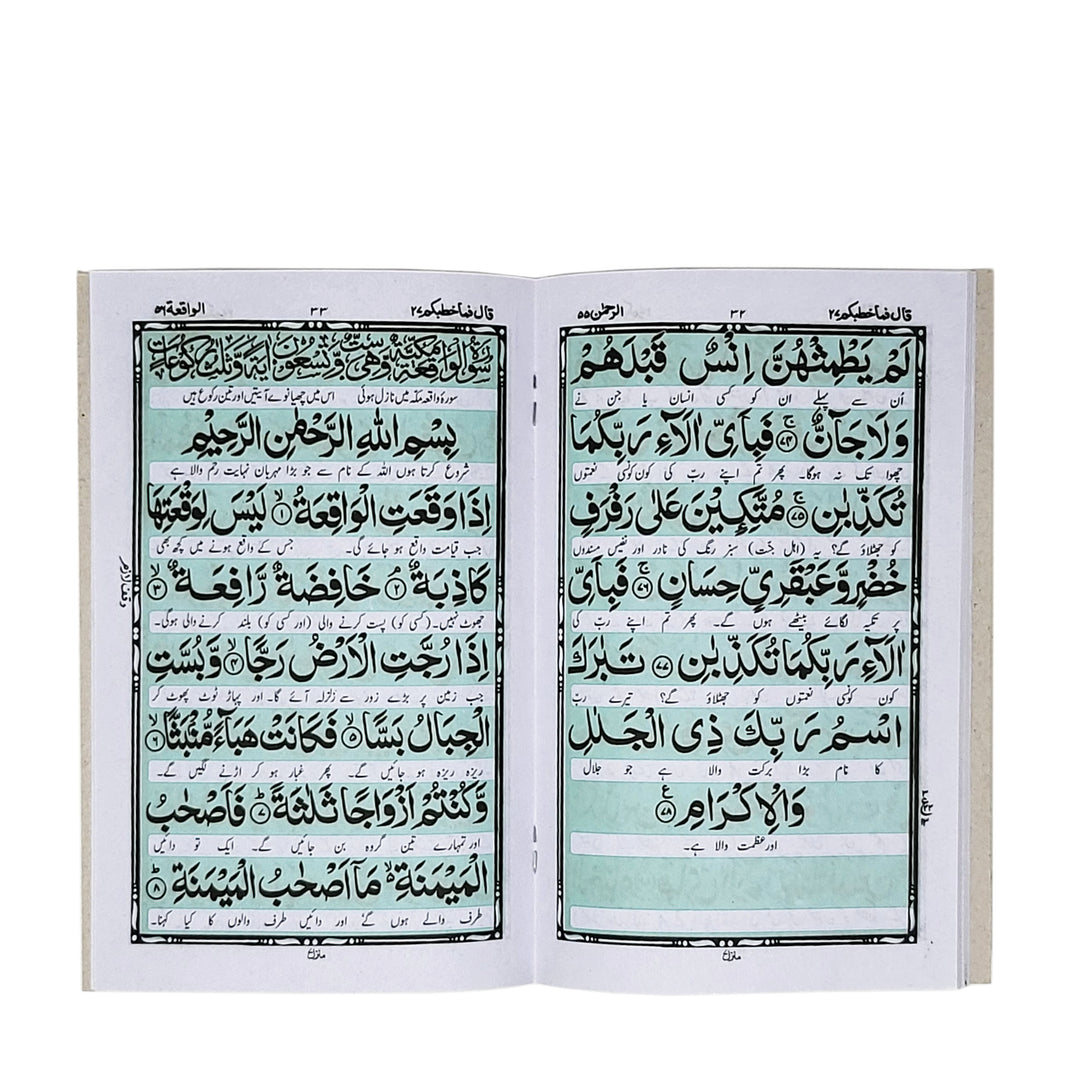 قال فما خطبكم ۲۷
۳۲
الرحمٰن ۵۵
لَمْ يَطْمِثْهُنَّ اِنْسٌ قَبْلَهُمْ
اُن سے پہلے ان کو کسی انسان یا جن نے
وَلَا جَآنٌّ ﴿۷۴﴾ۚ فَبِاَىِّ اٰلَآءِ رَبِّكُمَا
چھوا تک نہ ہوگا۔ پھر تم اپنے ربّ کی کون کونسی نعمتوں
تُكَذِّبٰنِ ﴿۷۵﴾ۚ مُتَّكِـِٕيْنَ عَلٰى رَفْرَفٍ
کو جھٹلاؤ گے؟ یہ (اہل جنّت) سبز رنگ کی نادر اور نفیس مسندوں
خُضْرٍ وَّعَبْقَرِىٍّ حِسَانٍ ﴿۷۶﴾ۚ فَبِاَىِّ
پر تکیہ لگائے بیٹھے ہوں گے۔ پھر تم اپنے ربّ کی
اٰلَآءِ رَبِّكُمَا تُكَذِّبٰنِ ﴿۷۷﴾ تَبٰرَكَ
کون کونسی نعمتوں کو جھٹلاؤ گے؟ تیرے ربّ
اسْمُ رَبِّكَ ذِى الْجَلٰلِ
کا نام بڑا برکت والا ہے جو جلال
وَالْاِكْرَامِ ﴿۷۸﴾ ع
اور عظمت والا ہے۔
قال فما خطبكم ۲۷
۳۳
الواقعة ۵۶
سُوْرَةُ الْوَاقِعَةِ مَكِّيَّةٌ وَّهِىَ سِتٌّ وَّتِسْعُوْنَ اٰيَةً وَّثَلٰثُ رُكُوْعَاتٍ
سورۂ واقعہ مکّہ میں نازل ہوئی اس میں چھیانوے آیتیں اور تین رکوع ہیں
بِسْمِ اللّٰهِ الرَّحْمٰنِ الرَّحِيْمِ
شروع کرتا ہوں اللہ کے نام سے جو بڑا مہربان نہایت رحم والا ہے
اِذَا وَقَعَتِ الْوَاقِعَةُ ﴿۱﴾ۙ لَيْسَ لِوَقْعَتِهَا
جب قیامت واقع ہو جائے گی۔ جس کے واقع ہونے میں کچھ بھی
كَاذِبَةٌ ﴿۲﴾ۘ خَافِضَةٌ رَّافِعَةٌ ﴿۳﴾ۙ
جھوٹ نہیں۔ (کسی کو) پست کرنے والی (اور کسی کو) بلند کرنے والی ہوگی۔
اِذَا رُجَّتِ الْاَرْضُ رَجًّا ﴿۴﴾ۙ وَّبُسَّتِ
جب زمین پر بڑے زور سے زلزلہ آئے گا۔ اور پہاڑ ٹوٹ پھوٹ کر
الْجِبَالُ بَسًّا ﴿۵﴾ۙ فَكَانَتْ هَبَآءً مُّنْۢبَثًّا ﴿۶﴾ۙ
ریزہ ریزہ ہو جائیں گے۔ پھر غبار ہو کر اڑنے لگیں گے۔
وَّكُنْتُمْ اَزْوَاجًا ثَلٰثَةً ﴿۷﴾ؕ فَاَصْحٰبُ
اور تمہارے تین گروہ بن جائیں گے۔ ایک تو دائیں
الْمَيْمَنَةِ ۙ مَاۤ اَصْحٰبُ الْمَيْمَنَةِ ﴿۸﴾ؕ
طرف والے ہوں گے اور دائیں طرف والوں کا کیا کہنا۔